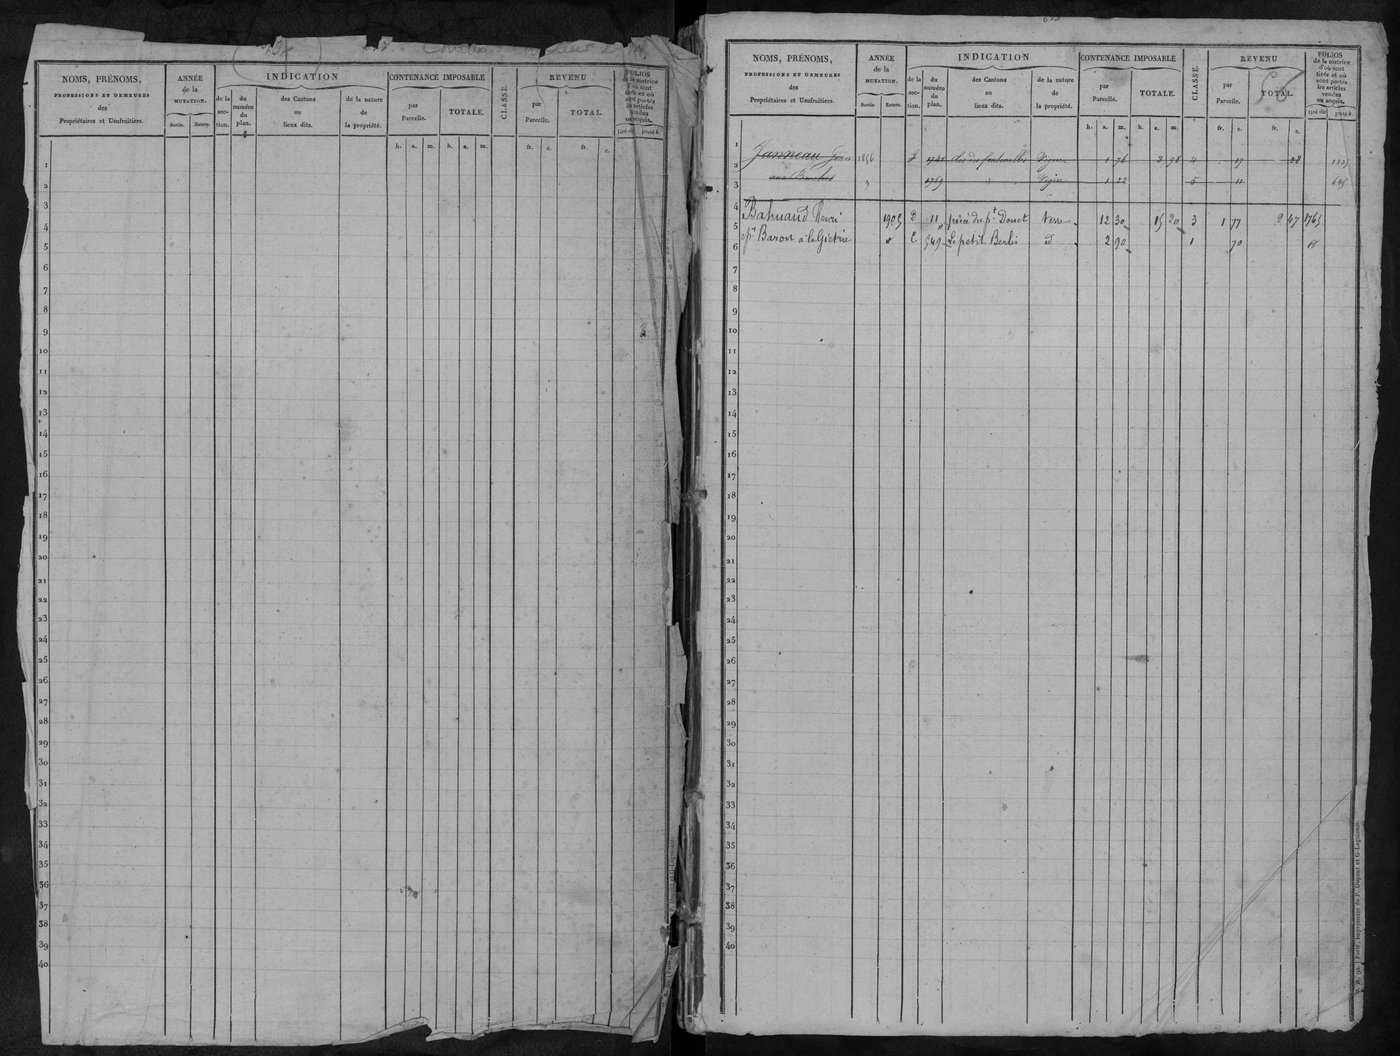 NOMS, PRÉNOMS,
PROFESSIONS ET DEMEURES
des
Propriétaires et Usufruitiers.
ANNÉE
de la
MUTATION.
Sortie. Entrée.
INDICATION
de la
sec-
tion.
du
numéro
du
plan.
des Cantons
ou
lieux dits.
de la nature
de
la propriété.
CONTENANCE IMPOSABLE
par
Parcelle.
TOTALE.
h. a. m. h. a. m.
CLASSE.
REVENU
par
Parcelle.
TOTAL.
fr. c. fr. c.
FOLIOS
de la matrice
d'où sont
tirés et où
sont portés
les articles
vendus
ou acquis.
tiré de porté à
1
2
3
4
5
6
7
8
9
10
11
12
13
14
15
16
17
18
19
20
21
22
23
24
25
26
27
28
29
30
31
32
33
34
35
36
37
38
39
40
NOMS, PRÉNOMS,
PROFESSIONS ET DEMEURES
des
Propriétaires et Usufruitiers.
ANNÉE
de la
MUTATION.
Sortie. Entrée.
INDICATION
de la
sec-
tion.
du
numéro
du
plan.
des Cantons
ou
lieux dits.
de la nature
de
la propriété.
CONTENANCE IMPOSABLE
par
Parcelle.
TOTALE.
h. a. m. h. a. m.
CLASSE.
REVENU
par
Parcelle.
TOTAL.
fr. c. fr. c.
FOLIOS
de la matrice
d'où sont
tirés et où
sont portés
les articles
vendus
ou acquis.
tiré de porté à
1
2 Janneau Jean 1856 F 1740 Vigne 1 76 2 98 4 17 28
3 1759 Vigne 1 22 5 11
4
5 Bahuaud Henri 1905 D 11 pièce du pt Douet Terre 12 30 15 20 3 1 77 2 47 1765
6 pr Baron à la C 549 Le petit Berlis d 2 90 1 70
7
8
9
10
11
12
13
14
15
16
17
18
19
20
21
22
23
24
25
26
27
28
29
30
31
32
33
34
35
36
37
38
39
40